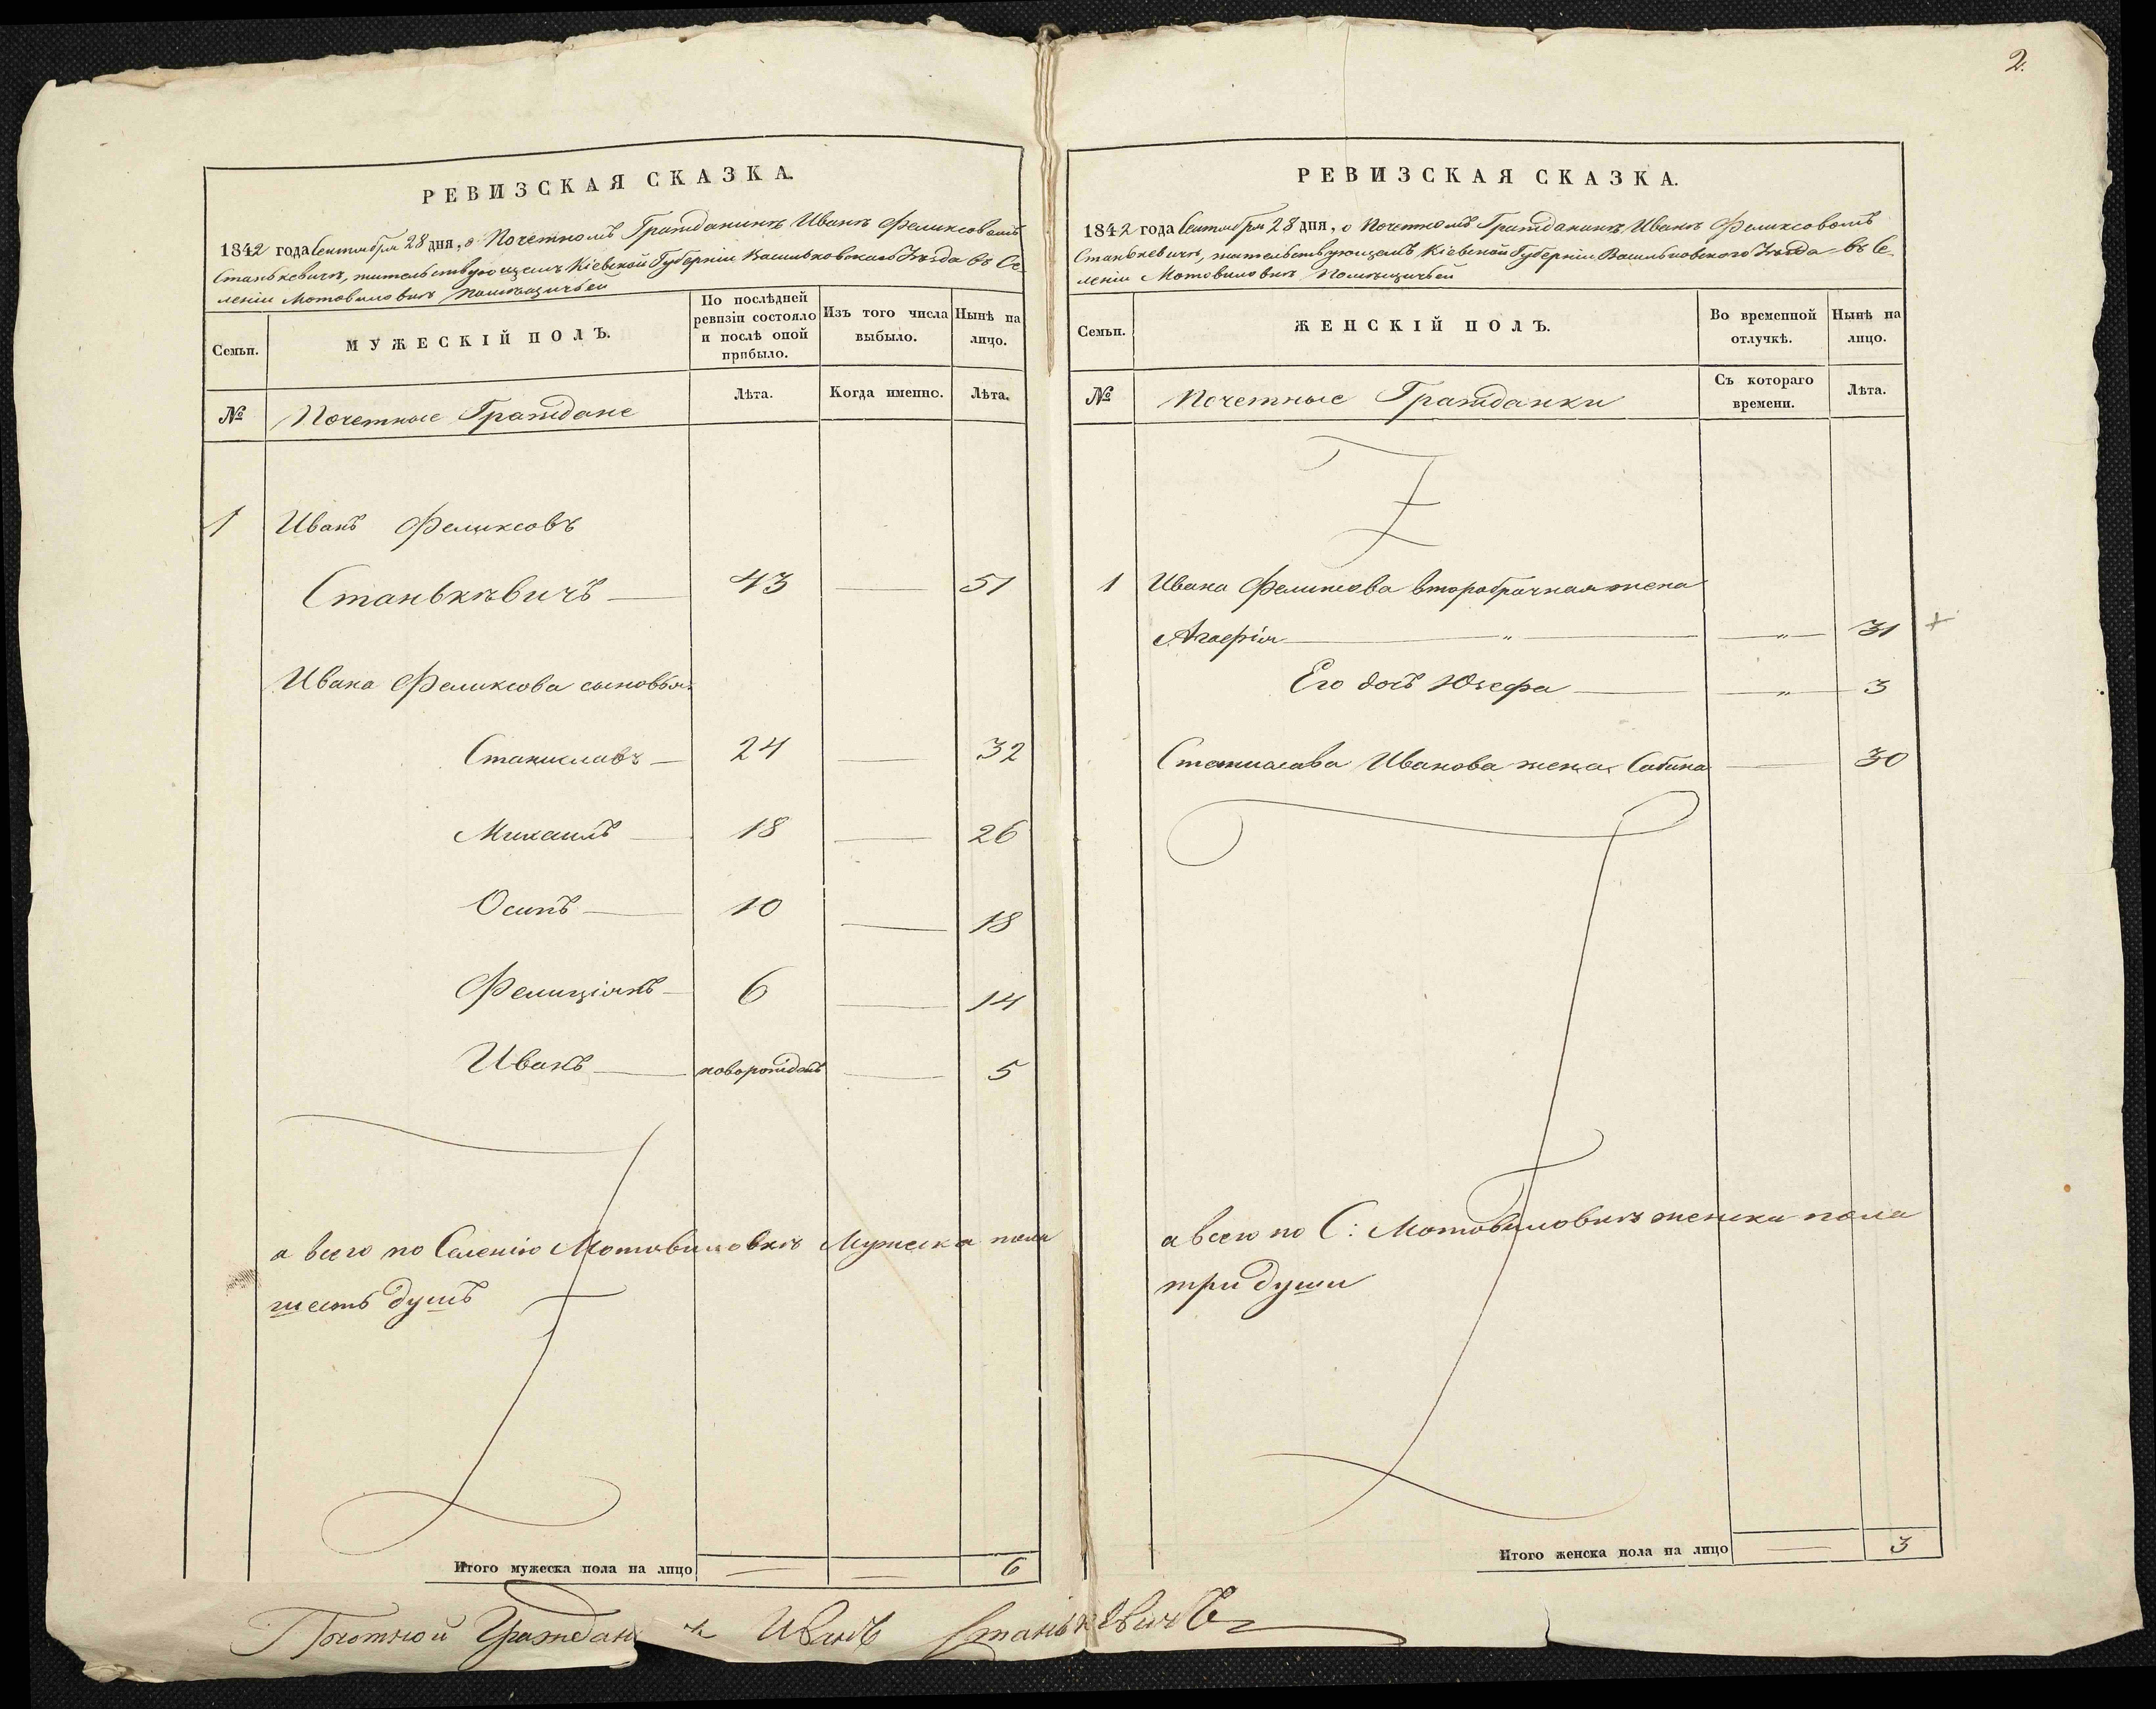 2.
РЕВИЗСКАЯ СКАЗКА.
1842 года Сентября 28 дня, о Почетномъ Гражданинѣ Иванѣ Феликсовомъ
Станькевичѣ, жительствующемъ Кіевской Губерніи Васильковскаго Уѣзда въ Се-
леніи Мотовиловкѣ помѣщичьей
Семьи.
МУЖЕСКІЙ ПОЛЪ.
По послѣдней ревизіи состояло и послѣ оной прибыло.
Изъ того числа выбыло.
Нынѣ на лицо.
№
Почетные Граждане
Лѣта.
Когда именно.
Лѣта.
1 Иванъ Феликсовъ
Станькѣвичъ — 43 — 51
Ивана Феликсова сыновья
Станиславъ — 24 — 32
Михаилъ — 18 — 26
Осипъ — 10 — 18
Фелиціянъ — 6 — 14
Иванъ — новорожденъ — 5
а всего по Селенію Мотовиловкѣ Мужеска пола
шесть душъ
Итого мужеска пола на лицо 6
РЕВИЗСКАЯ СКАЗКА.
1842 года Сентября 28 дня, о Почетномъ Гражданинѣ Иванѣ Феликсовомъ
Станькевичѣ, жительствующемъ, Кіевской Губерніи Васильковского Уѣзда въ Се-
леніи Мотовиловкѣ помѣщичьей
Семьи.
ЖЕНСКІЙ ПОЛЪ.
Во временной отлучкѣ.
Нынѣ на лицо.
№
Почетные Гражданки
Съ котораго времени.
Лѣта.
1 Ивана Феликсова второбрачная жена
Агафія — " — — " — 31 +
Его дочъ Юзефа — — " — 3
Станислава Иванова жена Сабина — 30
а всего по С: Мотовиловкѣ женска пола
три души
Итого женска пола на лицо 3
Почотной Гражданинъ Иванъ Станькевичъ